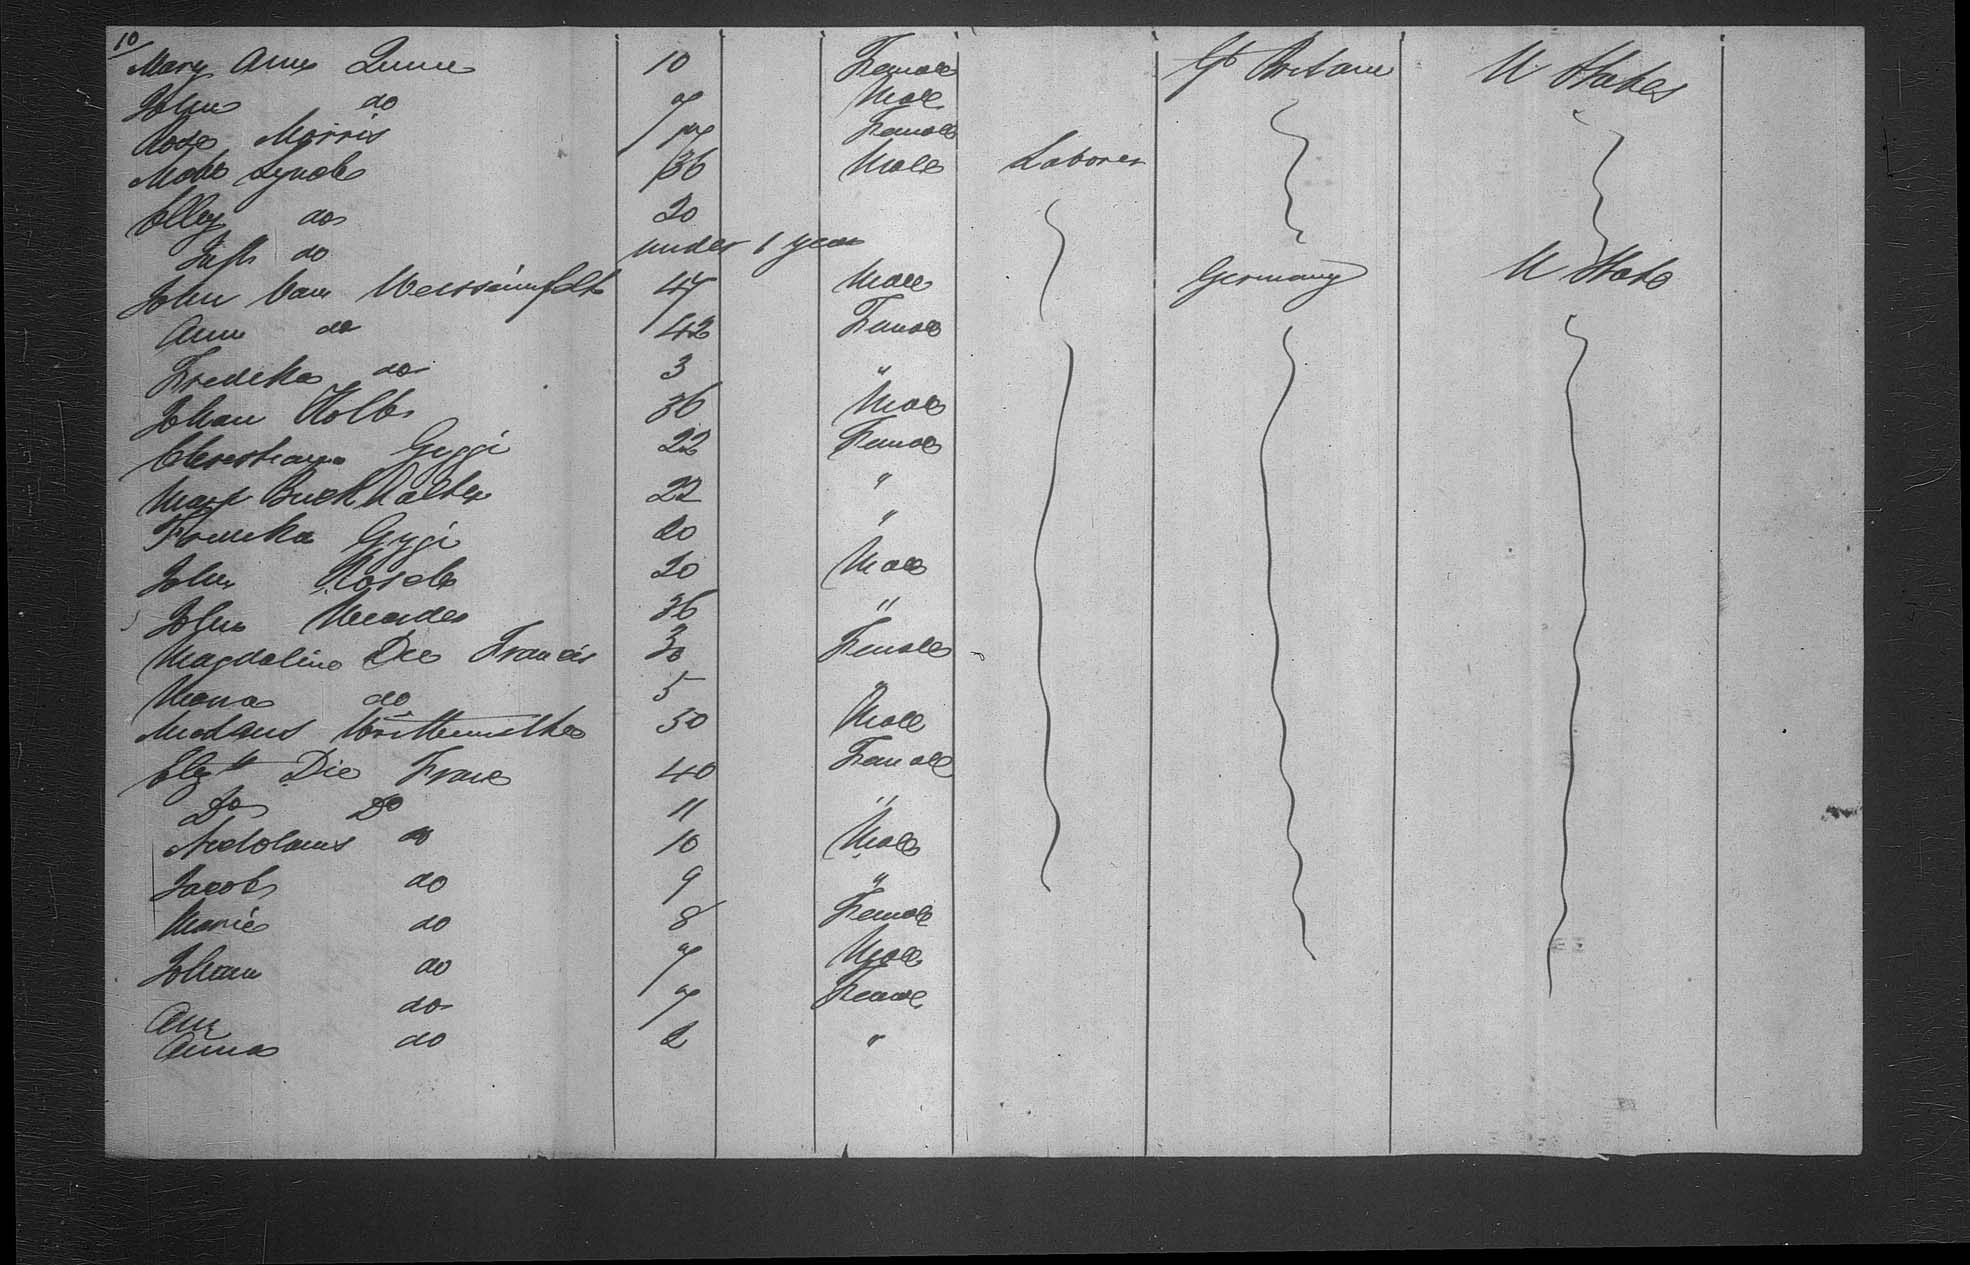 10
Mary Ann Quinn 10 Female Gt Britain U States
John do 7 Male
Rose Morris 17 Female
Lynch 36 Male Laborer
Elley do 20
Inft do under 1 year
John Van 47 Male Germany U State
Ann do 42 Female
Fredeka do 3 "
Johan Kolb 36 Male
Gyggi 22 Female
Mary Buckhalter 22 "
Gygi 20 "
John 20 Male
John 36 "
Magdaline Dee Francis 30 Female
do 5 "
50 Male
Elizth Die Frane 40 Female
Do Do 11 "
do 10 Male
Jacob do 9 "
Marie do 8 Female
Johan do 7 Male
Ann do 7 Female
Anna do 2 "